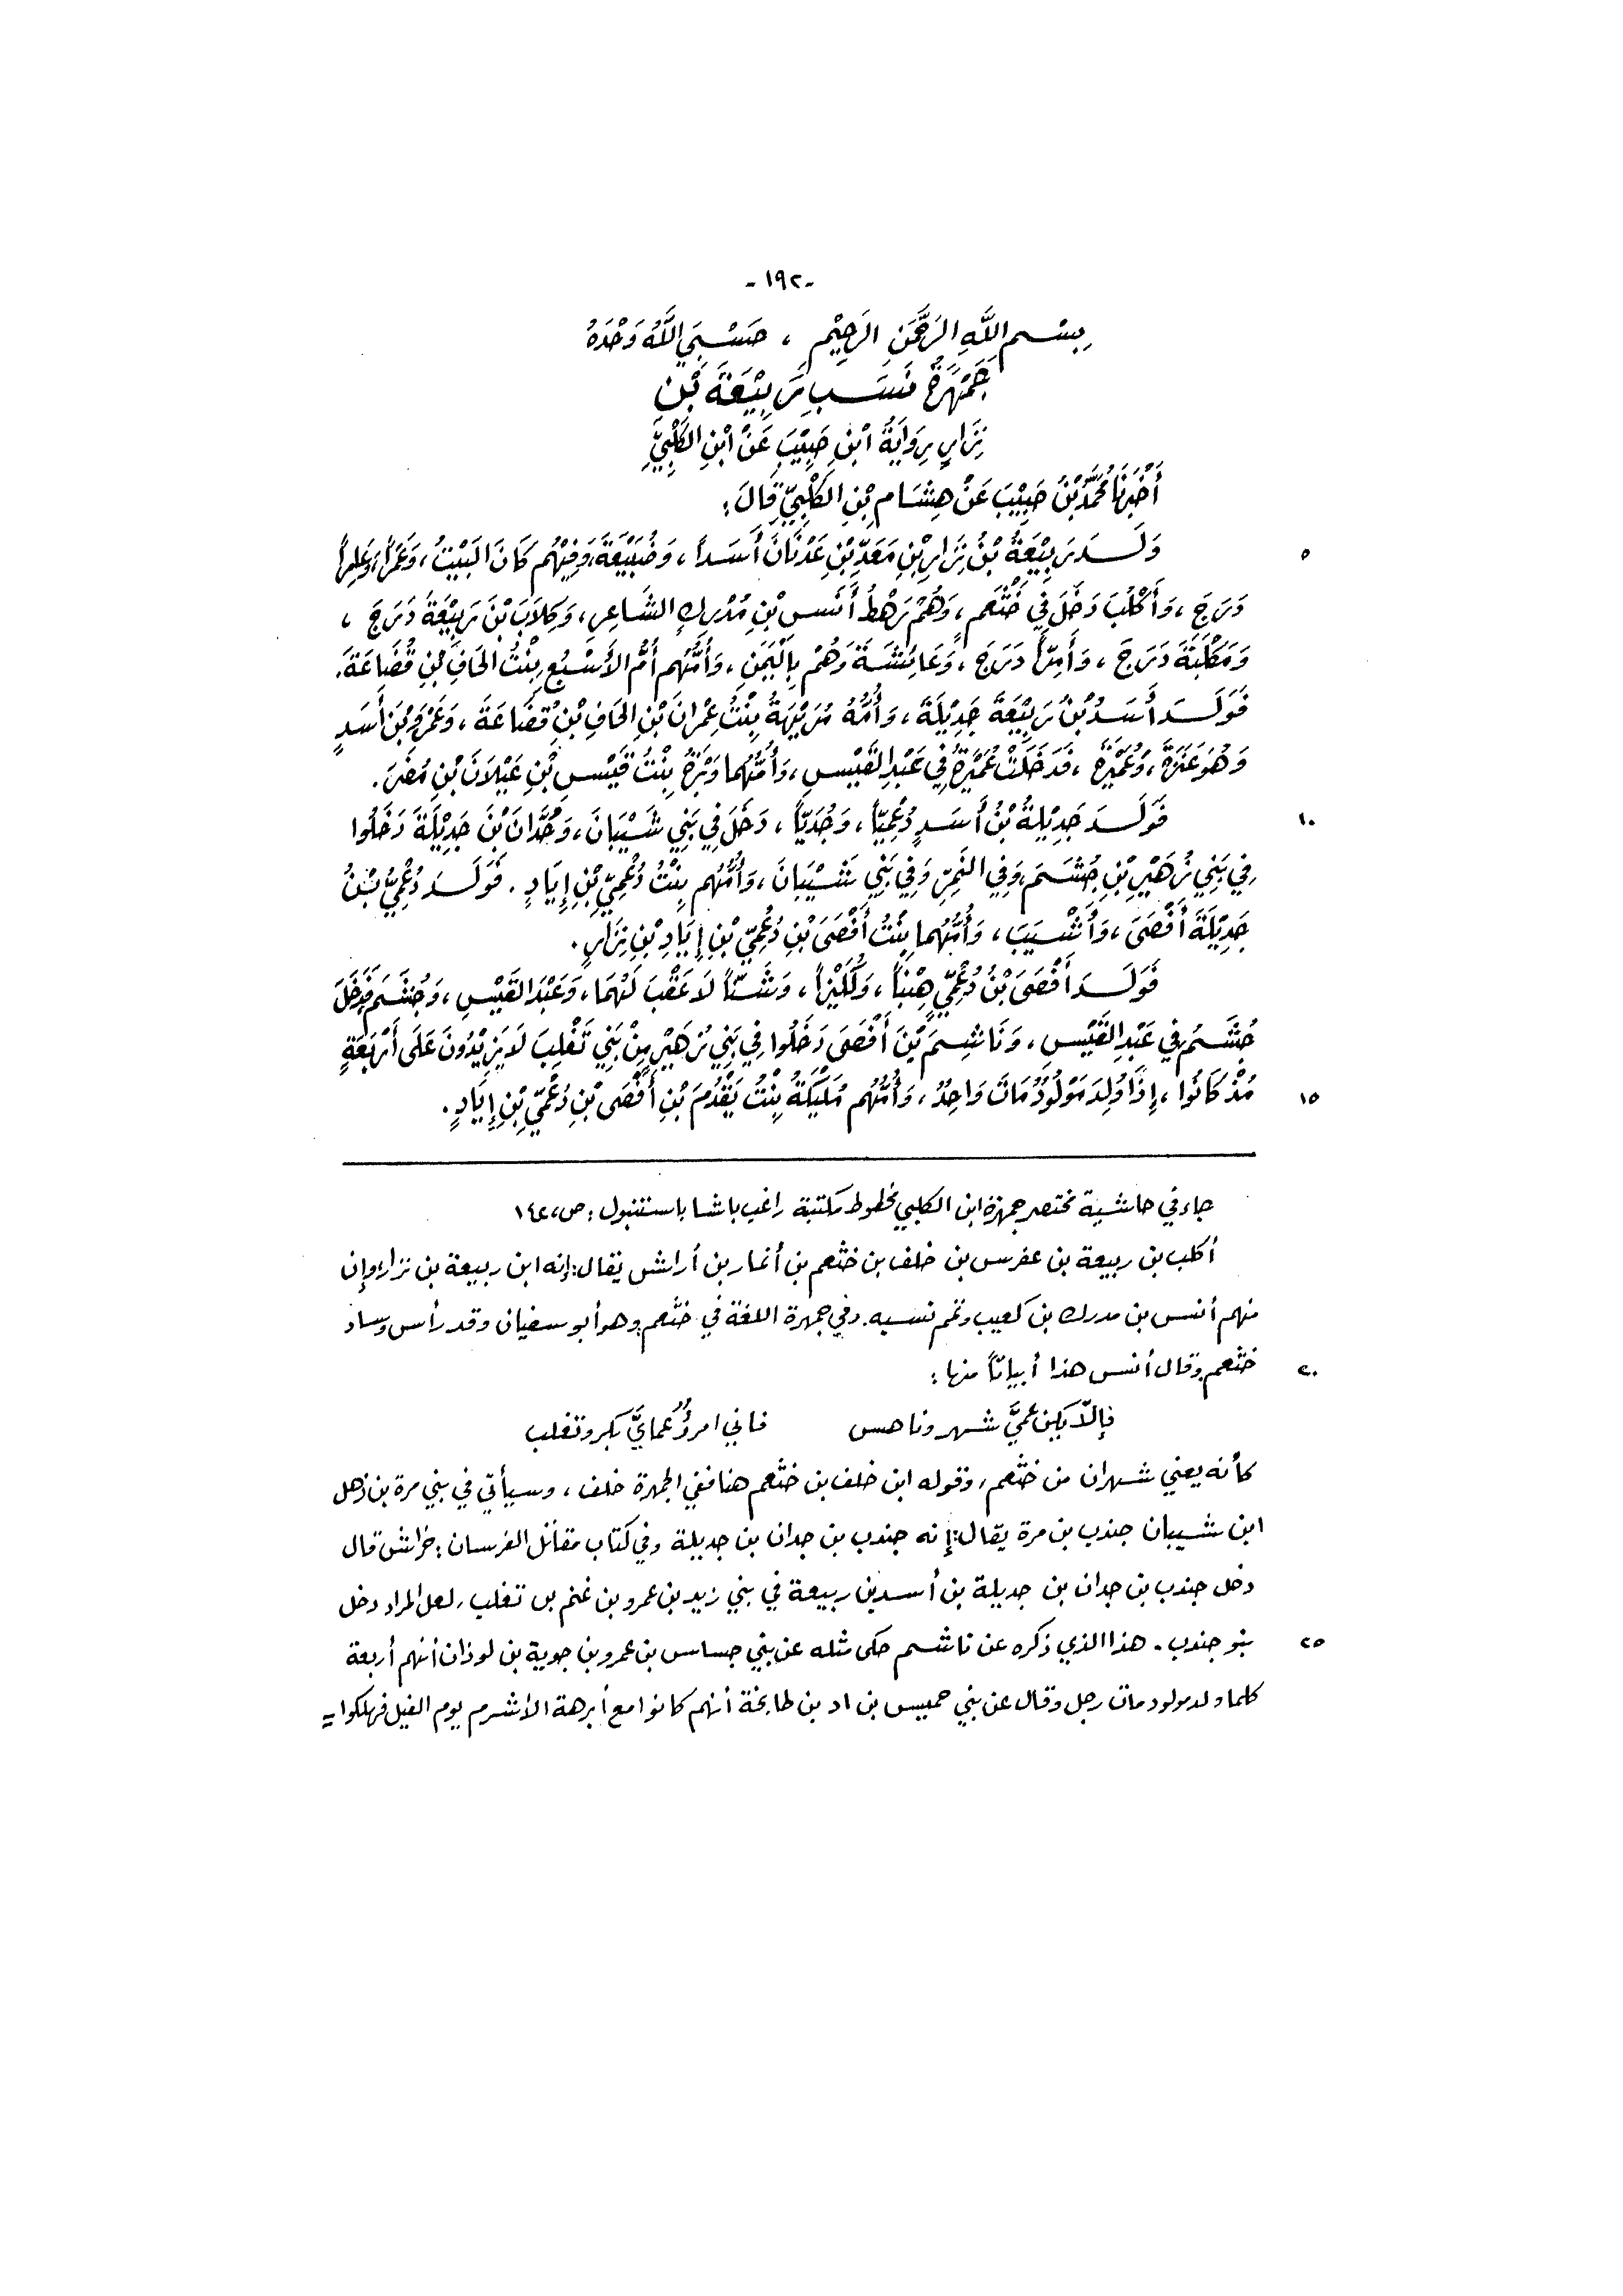 -١٩٢-
بِسْمِ اللَّهِ الرَّحْمَنِ الرَّحِيْمِ ، حَسْبِيَ اللَّهُ وَحْدَهُ
جَمْهَرَةُ نَسَبِ رَبِيْعَةَ بْنِ
نِزَارٍ رِوَايَةُ ابْنِ حَبِيْبَ عَنْ ابْنِ الكَلْبِيِّ
أَخْبَرَنَا مُحَمَّدُ بْنُ حَبِيْبَ عَنْ هِشَامِ بْنِ الكَلْبِيِّ قَالَ:
٥ وَلَدَ رَبِيْعَةُ بْنُ نِزَارِ بْنِ مَعَدِّ بْنِ عَدْنَانَ أَسَداً ، وَضُبَيْعَةَ، وَفِيْهُم كَانَ البَيْتُ ، وَعَمْراً، وَعَامِراً
دَرَجَ ، وَأَكْلُبَ دَخَلَ فِي خَثْعَمٍ ، وَهُمْ رَهْطُ أَنَسِ بْنِ مُدْرِكٍ الشَّاعِرِ ، وَكِلَابَ بْنَ رَبِيْعَةَ دَرَجَ ،
وَمَكْلَبَةَ دَرَجَ ، وَأَمِرّاً دَرَجَ ، وَعَائِشَةَ وَهُمْ بِالْيَمَنِ ، وَأُمُّهُم أُمُّ الأَسْبُعِ بِنْتُ الحَافِ بْنِ قُضَاعَةَ.
فَوَلَدَ أَسَدُ بْنُ رَبِيْعَةَ جَدِيْلَةَ ، وَأُمُّهُ مُزَيْهَةُ بِنْتُ عِمْرَانَ بْنِ الحَافِ بْنِ قُضَاعَةَ ، وَعَمْرَو بْنَ أَسَدٍ
وَهُوَ عَنَزَةُ ، وَعُمَيْرَةَ ، فَدَخَلَتْ عُمَيْرَةُ فِي عَبْدِ القَيْسِ ، وَأُمُّهُما وَبْرَةُ بِنْتُ قَيْسِ بْنِ عَيْلَانَ بْنِ مُضَرَ.
١٠ فَوَلَدَ جَدِيْلَةُ بْنُ أَسَدٍ دُعْمِيّاً ، وَجُدَيّاً ، دَخَلَ فِي بَنِي شَيْبَانَ ، وَجُدَّانَ بْنَ جَدِيْلَةَ دَخَلُوا
فِي بَنِي زُهَيْرِ بْنِ جُشَمَ، وَفِي النَّمِرِ وَفِي بَنِي شَيْبَانَ ، وَأُمُّهُم بِنْتُ دُعْمِيِّ بْنِ إِيَادٍ . فَوَلَدَ دُعْمِيُّ بْنُ
جَدِيْلَةَ أَفْصَى ، وَأَشْيَبَ ، وَأُمُّهُما بِنْتُ أَفْصَى بْنِ دُعْمِيِّ بْنِ إِيَادِ بْنِ نِزَارٍ.
فَوَلَدَ أَفْصَى بْنُ دُعْمِيٍّ هِنْباً ، وَلُكَيْزاً ، وَشَنّاً لَا عَقْبَ لَهُمَا ، وَعَبْدَ القَيْسِ ، وَجُشَمَ فَدَخَلَ
جُشَمُ فِي عَبْدِ القَيْسِ ، وَنَاشِمَ بْنَ أَفْصَى دَخَلُوا فِي بَنِي زُهَيْرٍ مِنْ بَنِي تَغْلِبَ لَا يَزِيْدُونَ عَلَى أَرْبَعَةٍ
١٥ مُذْ كَانُوا ، إِذَا وُلِدَ مَوْلُودٌ مَاتَ وَاحِدٌ ، وَأُمُّهُم مُلَيْكَةُ بِنْتُ يَقْدُمَ بْنِ أَفْصَى بْنِ دُعْمِيِّ بْنِ إِيَادٍ.
جاء في حاشية مختصر جمهرة ابن الكلبي مخطوط مكتبة راغب باشا باستنبول : ص، ١٤٢
أكلب بن ربيعة بن عفرس بن خلف بن خثعم بن أنمار بن أراش يقال: إنه ابن ربيعة بن نزار، وإن
منهم أنس بن مدرك بن كعيب وتمم نسبه. وفي جمهرة اللغة في خثعم، وهو أبو سفيان وقد رأس وساد
٢٠ خثعم، وقال أنس هذا أبياتاً منها :
فإلاّ يكن عميَّ شهر وناهس    فاني امرؤٌ عمايَّ بكر وتغلب
كأنه يعني شهران من خثعم، وقوله ابن خلف بن خثعم هنا ففي الجمهرة خلف ، وسيأتي في بني مرة بن ذهل
ابن شيبان جندب بن مرة يقال: إنه جندب بن جدان بن جديلة وفي كتاب مقاتل الفرسان : خراش قال
دخل جندب بن جدان بن جديلة بن أسد بن ربيعة في بني زيد بن عمرو بن غنم بن تغلب، لعل المراد دخل
٢٥ بنو جندب. هذا الذي ذكره عن ناشم حكى مثله عن بني جساس بن عمرو بن جوية بن لوذان أنهم أربعة
كلما ولد مولود مات رجل وقال عن بني حميس بن اد بن طابخة أنهم كانوا مع أبرهة الأشرم يوم الفيل فهلكوا =